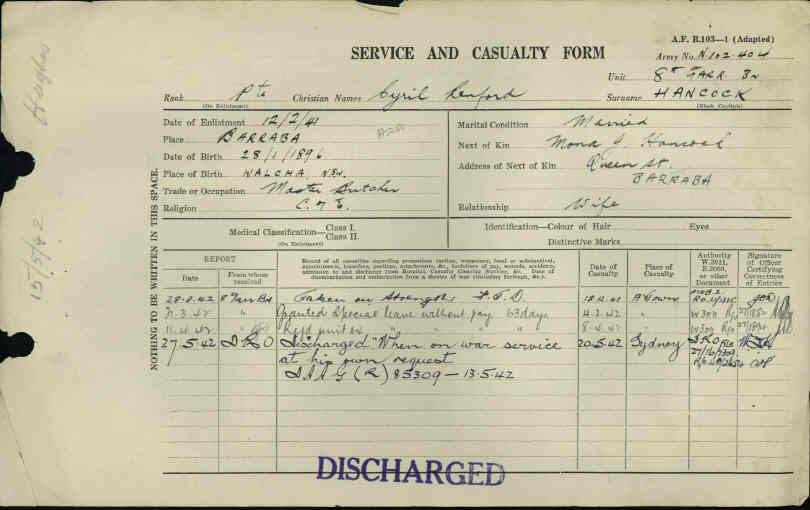 A.F. B.103—1 (Adapted)
SERVICE AND CASUALTY FORM
Army No. N.102404
Unit 8th GARR Bn
Rank Pte Christian Names Cyril Renford Surname HANCOCK
(On Enlistment) (Block Capitals)
Date of Enlistment 12/2/41
Place BARRABA
Date of Birth 28/1/1896
Place of Birth WALCHA, N.S.W.
Trade or Occupation Master Butcher
Religion C of E.
Marital Condition Married
Next of Kin Mona J. Hancock
Address of Next of Kin Queen St.
BARRABA
Relationship Wife
Medical Classification— Class I.
Class II.
(On Enlistment)
Identification—Colour of Hair Eyes
Distinctive Marks
NOTHING TO BE WRITTEN IN THIS SPACE.
Hughes
15/5/42
REPORT
Date
From whom received
Record of all casualties regarding promotions (acting, temporary, local or substantive), appointments, transfers, postings, attachments, &c., forfeiture of pay, wounds, accidents, admission to and discharge from Hospital, Casualty Clearing Station, &c. Date of disembarkation and embarkation from a theatre of war (including furlough, &c.).
Date of Casualty
Place of Casualty
Authority W.3011, B.2069, or other Document
Signature of Officer Certifying Correctness of Entries
Taken on Strength F.T.D.
Granted Special leave without pay 63 days
27.5.42 DRO Discharged "When on war service 20.5.42 Sydney DRO
at his own request
DAAG (R) 85309 — 13.5.42
DISCHARGED